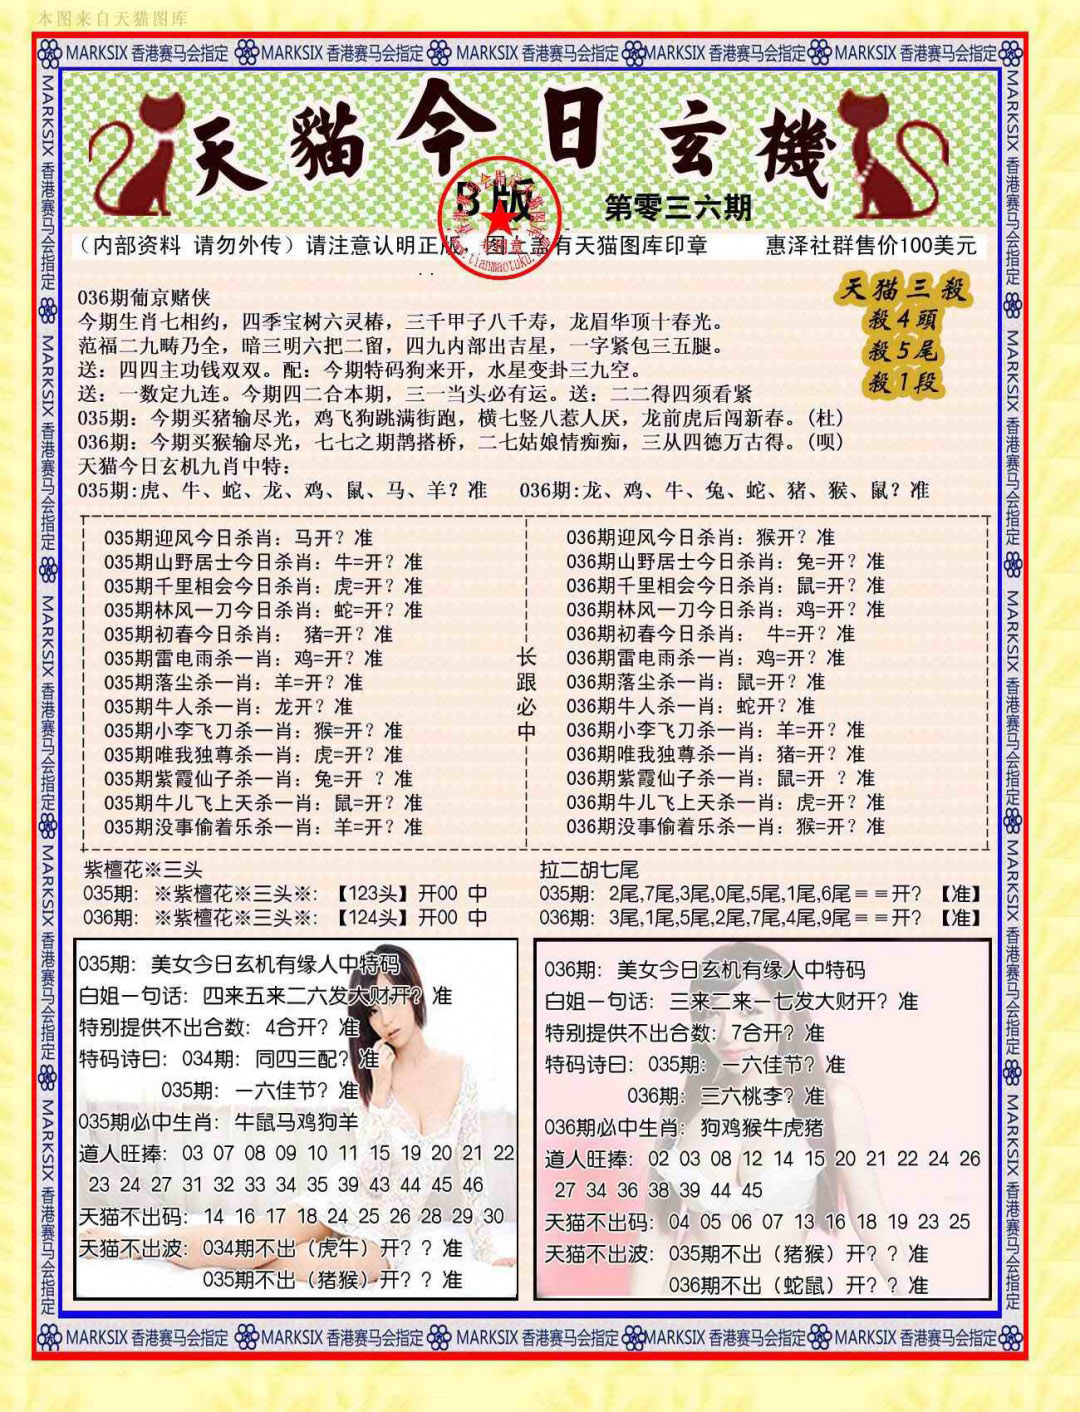 本图来自天猫图库
MARKSIX 香港赛马会指定 MARKSIX 香港赛马会指定 MARKSIX 香港赛马会指定 MARKSIX 香港赛马会指定 MARKSIX 香港赛马会指定
天貓今日玄機
B版
第零三六期
（内部资料 请勿外传）请注意认明正版，图上盖有天猫图库印章
惠泽社群售价100美元
天猫三殺
殺4頭
殺5尾
殺1段
036期葡京赌侠
今期生肖七相约，四季宝树六灵椿，三千甲子八千寿，龙眉华顶十春光。
范福二九畴乃全，暗三明六把二留，四九内部出吉星，一字紧包三五腿。
送：四四主功钱双双。配：今期特码狗来开，水星变卦三九空。
送：一数定九连。今期四二合本期，三一当头必有运。送：二二得四须看紧
035期：今期买猪输尽光，鸡飞狗跳满街跑，横七竖八惹人厌，龙前虎后闯新春。(杜)
036期：今期买猴输尽光，七七之期鹊搭桥，二七姑娘情痴痴，三从四德万古得。(呗)
天猫今日玄机九肖中特：
035期:虎、牛、蛇、龙、鸡、鼠、马、羊？准 036期:龙、鸡、牛、兔、蛇、猪、猴、鼠？准
035期迎风今日杀肖：马开？准
035期山野居士今日杀肖：牛=开？准
035期千里相会今日杀肖：虎=开？准
035期林风一刀今日杀肖：蛇=开？准
035期初春今日杀肖： 猪=开？准
035期雷电雨杀一肖：鸡=开？准
035期落尘杀一肖：羊=开？准
035期牛人杀一肖：龙开？准
035期小李飞刀杀一肖：猴=开？准
035期唯我独尊杀一肖：虎=开？准
035期紫霞仙子杀一肖：兔=开 ？准
035期牛儿飞上天杀一肖：鼠=开？准
035期没事偷着乐杀一肖：羊=开？准
长跟必中
036期迎风今日杀肖：猴开？准
036期山野居士今日杀肖：兔=开？准
036期千里相会今日杀肖：鼠=开？准
036期林风一刀今日杀肖：鸡=开？准
036期初春今日杀肖： 牛=开？准
036期雷电雨杀一肖：鸡=开？准
036期落尘杀一肖：鼠=开？准
036期牛人杀一肖：蛇开？准
036期小李飞刀杀一肖：羊=开？准
036期唯我独尊杀一肖：猪=开？准
036期紫霞仙子杀一肖：鼠=开 ？准
036期牛儿飞上天杀一肖：虎=开？准
036期没事偷着乐杀一肖：猴=开？准
紫檀花※三头
035期：※紫檀花※三头※：【123头】开00 中
036期：※紫檀花※三头※：【124头】开00 中
拉二胡七尾
035期：2尾,7尾,3尾,0尾,5尾,1尾,6尾＝＝开？【准】
036期：3尾,1尾,5尾,2尾,7尾,4尾,9尾＝＝开？【准】
035期：美女今日玄机有缘人中特码
白姐一句话：四来五来二六发大财开？准
特别提供不出合数：4合开？准
特码诗曰：034期：同四三配？准
035期：一六佳节？准
035期必中生肖：牛鼠马鸡狗羊
道人旺捧：03 07 08 09 10 11 15 19 20 21 22
23 24 27 31 32 33 34 35 39 43 44 45 46
天猫不出码：14 16 17 18 24 25 26 28 29 30
天猫不出波：034期不出（虎牛）开？？准
035期不出（猪猴）开？？准
036期：美女今日玄机有缘人中特码
白姐一句话：三来二来一七发大财开？准
特别提供不出合数：7合开？准
特码诗曰：035期：一六佳节？准
036期：三六桃李？准
036期必中生肖：狗鸡猴牛虎猪
道人旺捧：02 03 08 12 14 15 20 21 22 24 26
27 34 36 38 39 44 45
天猫不出码：04 05 06 07 13 16 18 19 23 25
天猫不出波：035期不出（猪猴）开？？准
036期不出（蛇鼠）开？？准
MARKSIX 香港赛马会指定 MARKSIX 香港赛马会指定 MARKSIX 香港赛马会指定 MARKSIX 香港赛马会指定 MARKSIX 香港赛马会指定